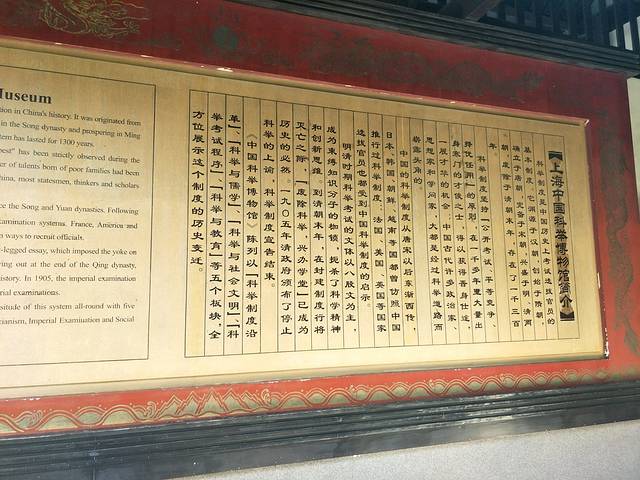 Museum
tion in China's history. It was originated from
in the Song dynasty and prospering in Ming
tem has lasted for 1300 years.
best" has been strictly observed during the
er of talents born of poor families had been
hina, most statesmen, thinkers and scholars
ce the Song and Yuan dynasties. Following
examination systems. France, America and
n ways to recruit officials.
-legged essay, which imposed the yoke on
ving out at the end of the Qing dynasty,
istory. In 1905, the imperial examination
rial examinations.
situde of this system all-round with five
cianism, Imperial Examination and Social
上海中国科举博物馆简介
科举制度是中国历史上考试选拔官员的
基本制度。它渊源于汉朝，创始于隋朝，
确立于唐朝，完备于宋朝，兴盛于明、清两
朝，废除于清朝末年，存在了一千三百
年。
科举制度坚持「公开考试、平等竞争、
择优任用」的原则，在一千多年里大量出
身寒门的才俊之士得以获得晋身仕途、
一展才华的机会，中国古代许多政治家、
思想家和学问家，大都是经过科举道路而
崭露头角的。
中国的科举制度从唐宋以后东渐西传，
日本、韩国、朝鲜、越南等国都曾仿照中国
推行过科举制度，法国、美国、英国等国家
选拔官员也都受到中国科举制度的启示。
明清时期科举考试的文体以八股文为主，
成为束缚知识分子的枷锁，扼杀了科学精神
和创新思维，到清朝末年，在封建制度行将
灭亡之际，「废除科举、兴办学堂」已成为
历史的必然，一九〇五年清政府颁布了停止
科举的上谕，科举制度宣告结束。
《中国科举博物馆》陈列以「科举制度沿
革」、「科举与儒学」、「科举与社会文明」、「科
举考试程序」、「科举与教育」等五个板块，全
方位展示这个制度的历史变迁。